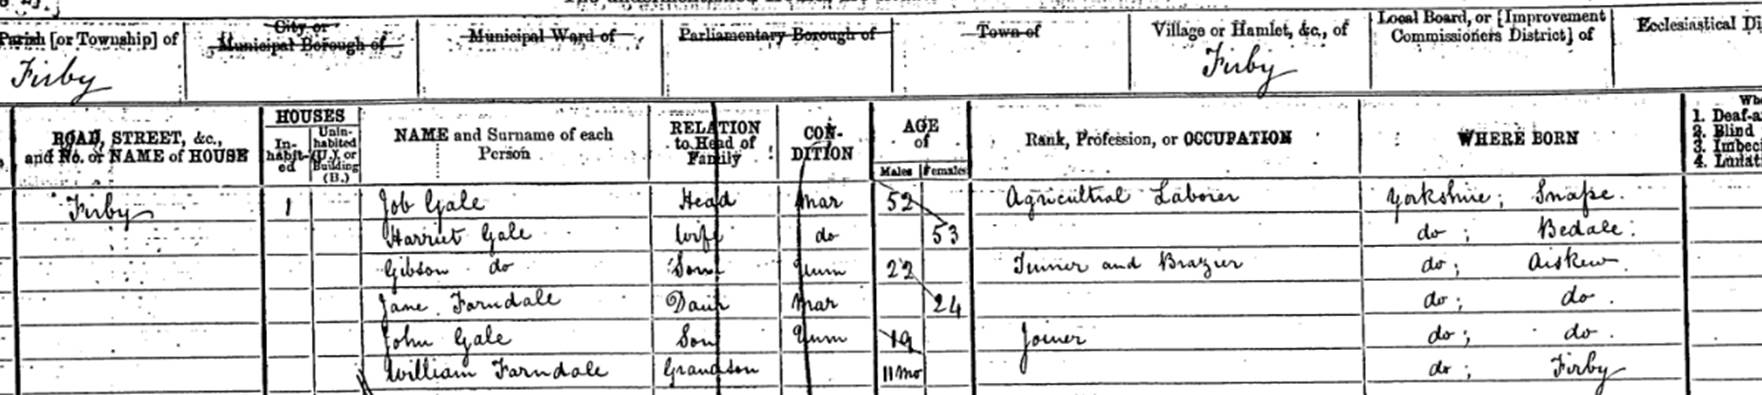 Parish [or Township] of
City or
Municipal Borough of
Municipal Ward of
Parliamentary Borough of
Town of
Village or Hamlet, &c., of
Local Board, or [Improvement
Commissioners District] of
Ecclesiastical Di
Firby
Firby
ROAD, STREET, &c.,
and No. or NAME of HOUSE
HOUSES
In-
habit-
ed
Unin-
habited
(U.), or
Building
(B.)
NAME and Surname of each
Person
RELATION
to Head of
Family
CON-
DITION
AGE
of
Males Females
Rank, Profession, or OCCUPATION
WHERE BORN
Wh
1. Deaf-a
2. Blind
3. Imbeci
4. Lunati
Firby 1 Job Gale Head Mar 52 Agricultral Laborer Yorkshire; Snape.
Harriet Gale Wife do 53 do; Bedale:
Gibson do Son Unm 22 Tinner and Brazier do; Aiskew.
Jane Farndale Daur Mar 24 do; do.
John Gale Son Unm 19 Joiner do; do.
William Farndale Grandson 11mo do; Firby